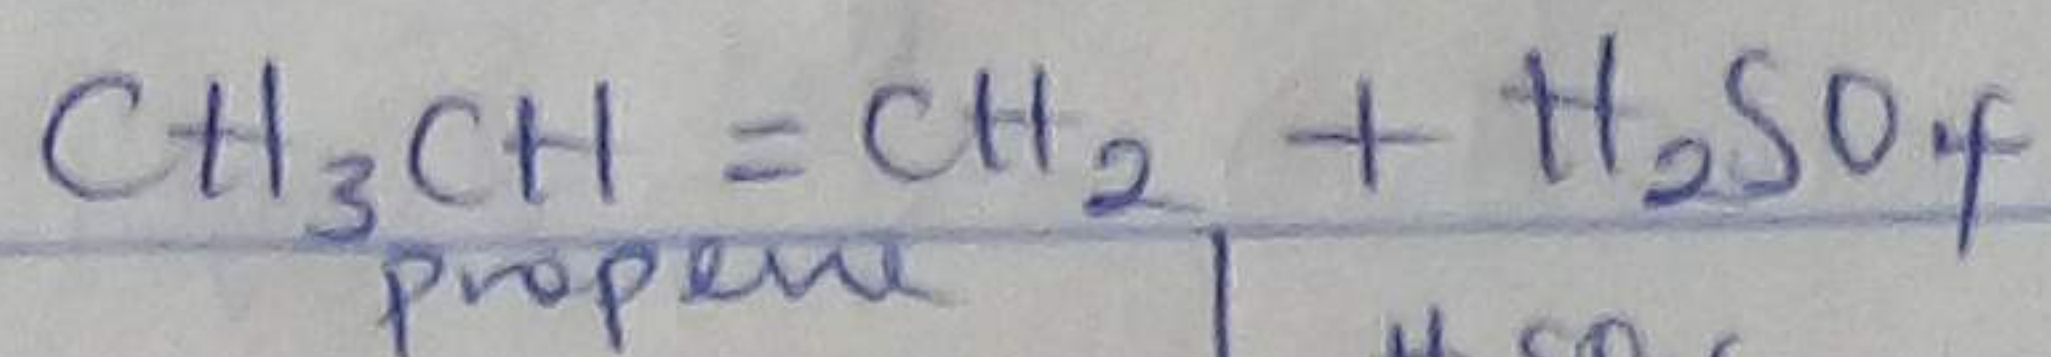 CH₃CH = CH₂ + H₂SO₄
propene
H₂SO₄